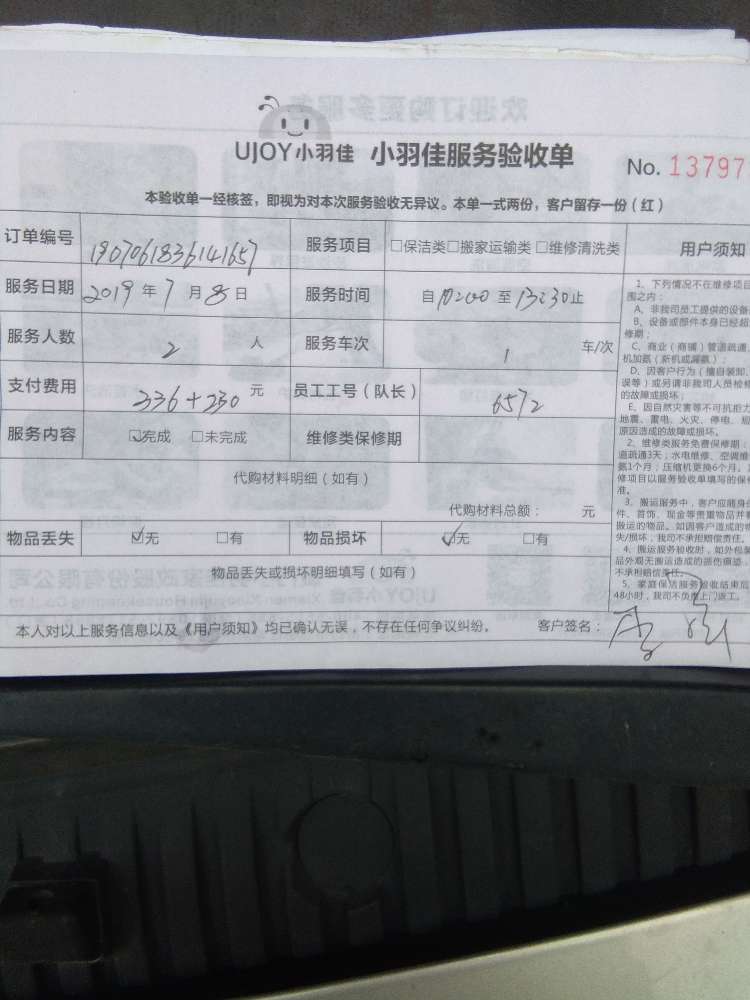 UJOY小羽佳 小羽佳服务验收单 No. 13797
本验收单一经核签，即视为对本次服务验收无异议。本单一式两份，客户留存一份（红）
订单编号 1907061836141657 服务项目 □保洁类□搬家运输类□维修清洗类 用户须知
服务日期 2019年7月8日 服务时间 自 至13:30止
服务人数 2 人 服务车次 1 车/次
支付费用 336+230 元 员工工号（队长） 6572
服务内容 ☑完成 □未完成 维修类保修期
代购材料明细（如有）
代购材料总额： 元
物品丢失 ☑无 □有 物品损坏 ☑无 □有
物品丢失或损坏明细填写（如有）
本人对以上服务信息以及《用户须知》均已确认无误，不存在任何争议纠纷。 客户签名：
1、下列情况不在维修项目
围之内：
A、非我司员工提供的设备
B、设备或部件本身已经超
修期；
C、商业（商铺）管道疏通、
机加氨（新机或漏氨）；
D、因客户行为（擅自装卸、
误等）或另请非我司人员检修
的故障或损坏；
E、因自然灾害等不可抗拒力
地震、雷电、火灾、停电、
原因造成的故障或损坏。
2、维修类服务免费保修期：
道疏通3天；水电维修、空调维
氨1个月；压缩机更换6个月。
修项目以服务验收单填写的保
准。
3、搬运服务中，客户应随身
件、首饰、现金等贵重物品并
搬运的物品。如因客户造成的
失/损坏，我司不承担赔偿责任。
4、搬运服务验收时，如外包装
品外观无搬运造成的损伤痕迹，
不承担赔偿责任。
5、家庭保洁服务验收结束后
48小时，我司不负责上门返工。